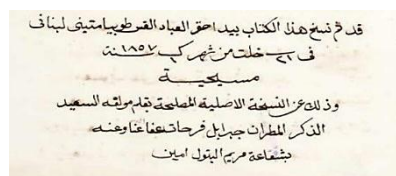 قد تم نسخ هذا الكتاب بيد احقر العباد القس طوبيا متيني لبناني
في ٢١ خلت من شهر ك١ سنة ١٨٥٧
مسيحية
وذلك عن النسخة الاصلية المصلحة بقلم مولفه السعيد
الذكر المطران جبرايل فرحات عفا عنا وعنه
بشفاعة مريم البتول امين